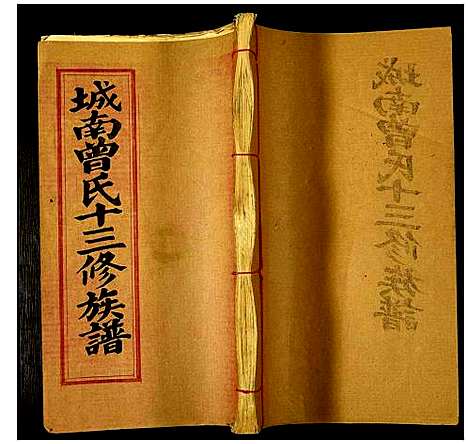 城南曾氏十三修族譜
城南曾氏十三修族譜